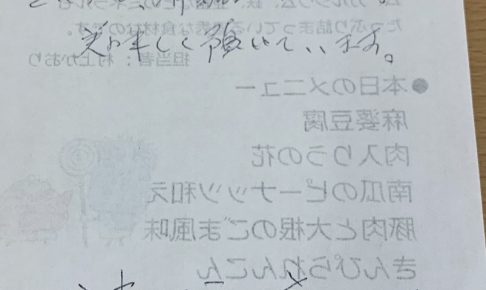 たっぷり詰まっている素敵な食材なのです。
美味しく頂いています。
担当者：村上かおり
●本日のメニュー
麻婆豆腐
肉入りうの花
南瓜のピーナッツ和え
豚肉と大根のごま風味
きんぴられんこん